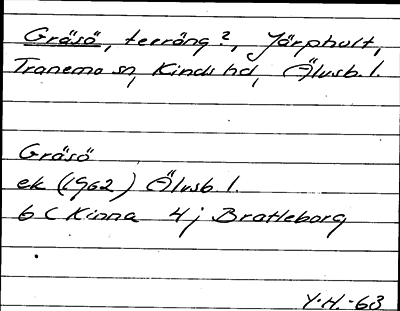 Gräsö, terräng?, Järphult,
Tranemo sn, Kinds hd, Älvsb. l.
Gräsö
ek (1962) Älvsb l.
6 C Kinna 4 j Brattleborg
Y.H.-63